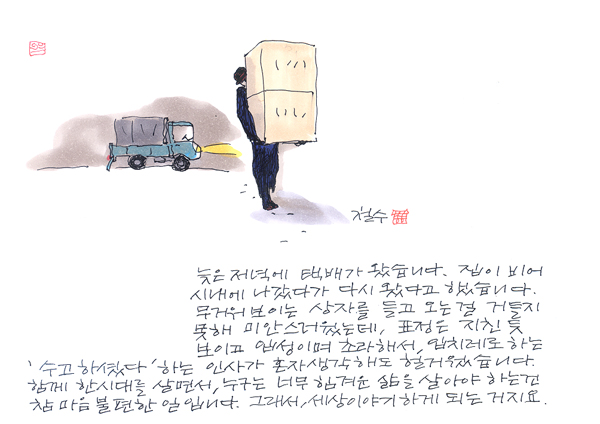 철수
늦은 저녁에 택배가 왔습니다. 집이 비어
시내에 나갔다가 다시 왔다고 했습니다.
무거워 보이는 상자를 들고 오는걸 거들지
못해 미안스러웠는데, 표정은 지친 듯
보이고 입성이며 초라해서, 입치레로 하는
'수고하셨다' 하는 인사가 혼자생각해도 헐거웠습니다.
함께 한시대를 살면서, 누구는 너무 힘겨운 삶을 살아야 하는건
참 마음 불편한 일입니다. 그래서, 세상이야기 하게 되는 거지요.